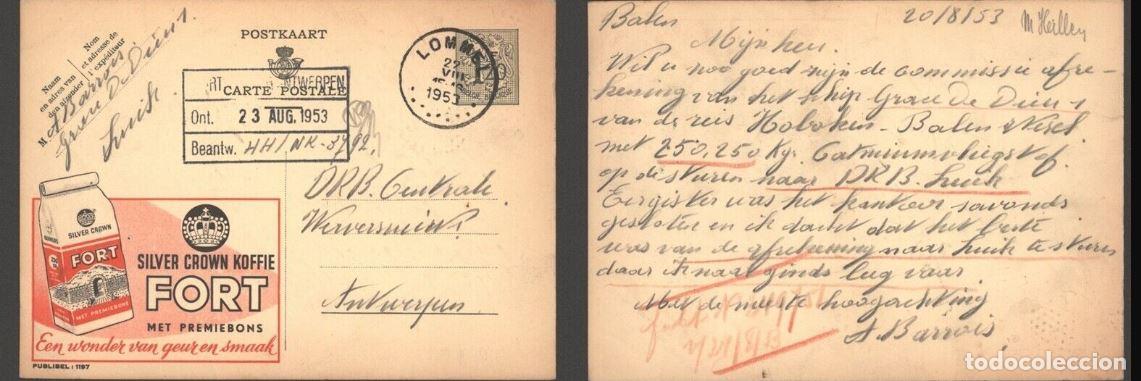 POSTKAART
CARTE POSTALE
Naam
en adres van
den afzender
Nom
et adresse de
l'expéditeur
M. A Barrois
Grâce De Dieu 1
Luik
ANTWERPEN
Ont. 23 AUG. 1953
Beantw. HH/NK-3792.
LOMMEL
22
VIII
1953
DRB. Centrale
Werversnieu
Antwerpen
SILVER CROWN
FORT
MET PREMIEBONS
SILVER CROWN KOFFIE
FORT
MET PREMIEBONS
Een wonder van geur en smaak
PUBLIBEL : 1197
Balen 20/8/53
Mijnheer.
Wil u zoo goed zijn de commissie afre-
kening van het schip Grace De Dieu 1
van de reis Hoboken - Balen Wezel
met 250,250 Kg.
op de sturen naar DRB. Luik
Eergister was het kantoor savonds
gesloten en ik dacht dat het beste
was van de afrekening naar Luik te sturen
daar ik naar ginds leg vaar
Met de meeste hoogachting
A. Barrois
todocoleccion
todocoleccion.net